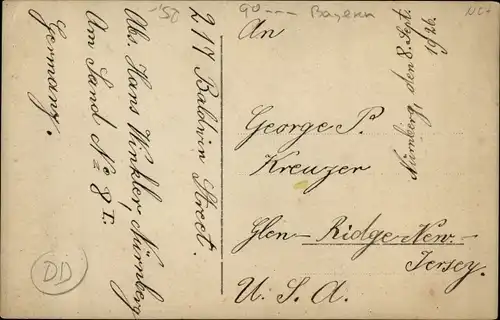 -.50
90--- Bayern
An
George P.
Kreuzer
Glen-Ridge-New-
Jersey.
U. S. A.
Nürnberg, den 8. Sept.
1926.
217 Baldwin Street.
Abs. Hans Winkler, Nürnberg
Am Sand No 8 I.
Germany.
DD